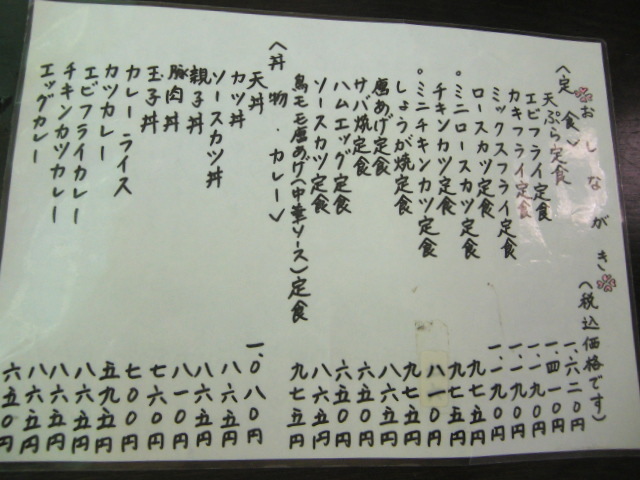 おしながき (税込価格です)
<定食>
天ぷら定食 一、六二〇円
エビフライ定食 一、四一〇円
カキフライ定食 一、一九〇円
ミックスフライ定食 一、一九〇円
ロースカツ定食 一、一九〇円
。ミニロースカツ定食 九七五円
チキンカツ定食 九七五円
。ミニチキンカツ定食 八一〇円
しょうが焼定食 九七五円
唐あげ定食 八六五円
サバ焼定食 六五〇円
ハムエッグ定食 六五〇円
ソースカツ定食 八六五円
鳥モモ唐あげ(中華ソース)定食 九七五円
<丼物・カレー>
天丼 一、〇八〇円
カツ丼 八六五円
ソースカツ丼 八六五円
親子丼 八一〇円
豚肉丼 七六〇円
玉子丼 七〇〇円
カレーライス 五九〇円
カツカレー 八六五円
エビフライカレー 八六五円
チキンカツカレー 八六五円
エッグカレー 六五〇円